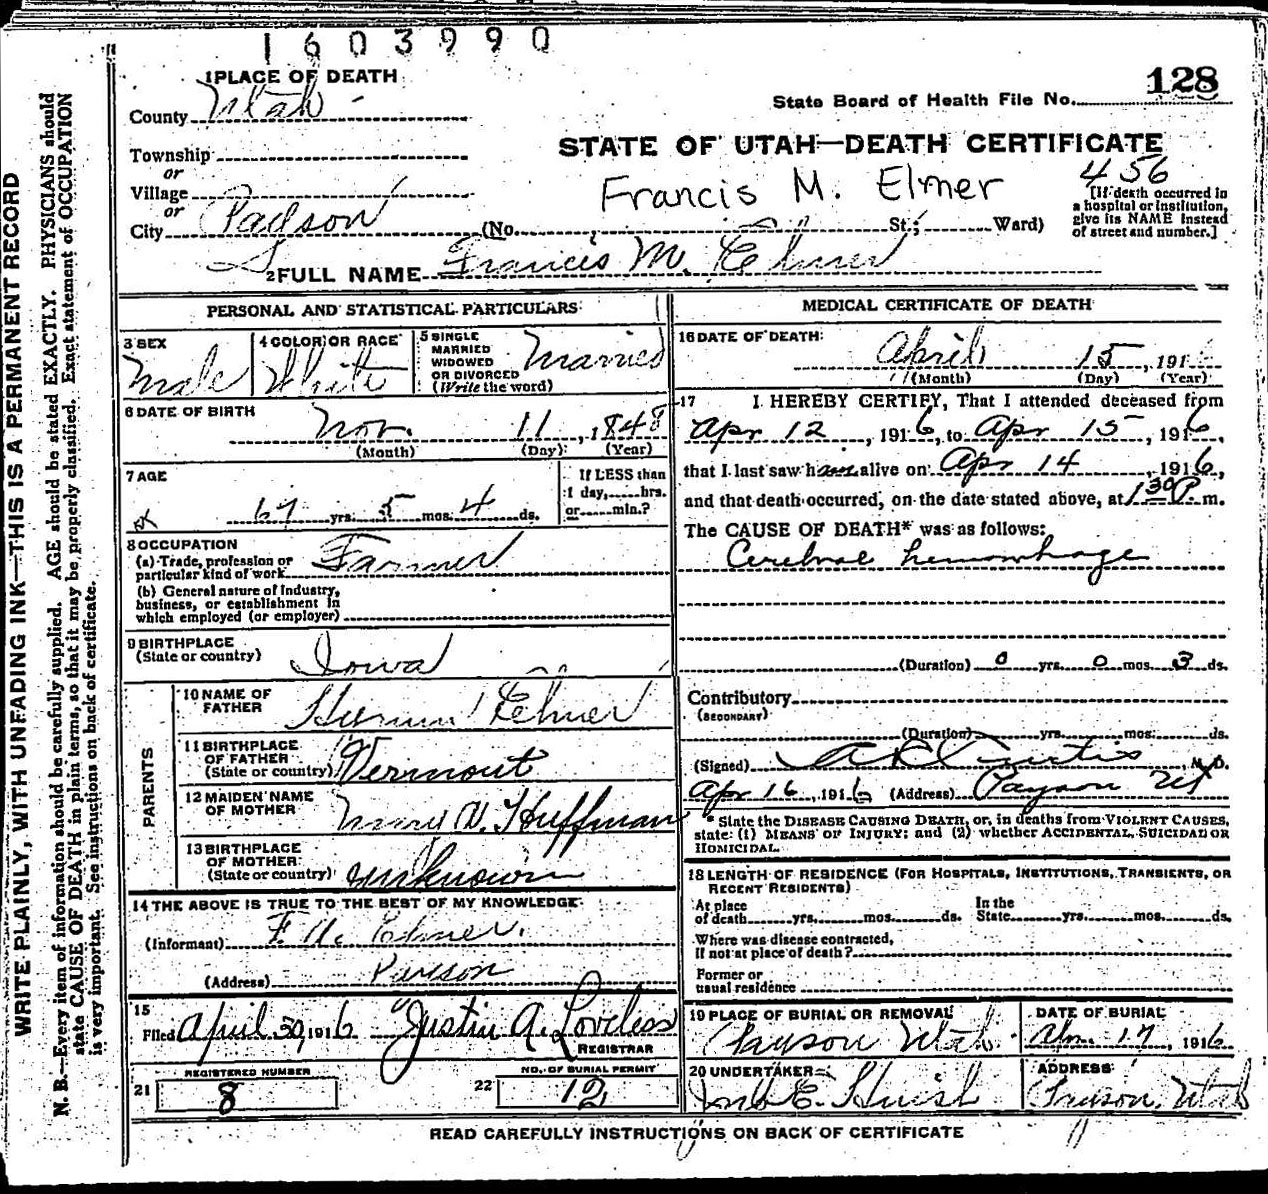 1603990
1 PLACE OF DEATH
128
County Utah
State Board of Health File No.
STATE OF UTAH—DEATH CERTIFICATE
Township
or
Village
or
City Payson (No. St.; Ward)
Francis M. Elmer
456
[If death occurred in
a hospital or institution,
give its NAME instead
of street and number.]
2 FULL NAME Francis M. Elmer
PERSONAL AND STATISTICAL PARTICULARS
3 SEX
Male
4 COLOR OR RACE
White
5 SINGLE
MARRIED
WIDOWED
OR DIVORCED
(Write the word)
Married
6 DATE OF BIRTH
Nov. 11, 1848
(Month) (Day) (Year)
7 AGE
67 yrs. 5 mos. 4 ds.
If LESS than
1 day, hrs.
or min.?
8 OCCUPATION
(a) Trade, profession or
particular kind of work Farmer
(b) General nature of industry,
business, or establishment in
which employed (or employer)
9 BIRTHPLACE
(State or country) Iowa
PARENTS
10 NAME OF
FATHER Elmer
11 BIRTHPLACE
OF FATHER
(State or country) Vermont
12 MAIDEN NAME
OF MOTHER Huffman
13 BIRTHPLACE
OF MOTHER
(State or country) unknown
14 THE ABOVE IS TRUE TO THE BEST OF MY KNOWLEDGE
(Informant) Elmer.
(Address) Payson
15
Filed April 30, 1916 Justin A. Loveless
REGISTRAR
21 REGISTERED NUMBER
8
22 NO. OF BURIAL PERMIT
12
MEDICAL CERTIFICATE OF DEATH
16 DATE OF DEATH:
April 15, 191
(Month) (Day) (Year)
17 I HEREBY CERTIFY, That I attended deceased from
Apr 12, 1916, to Apr 15, 1916,
that I last saw him alive on Apr 14, 1916,
and that death occurred, on the date stated above, at 1 30 P. m.
The CAUSE OF DEATH* was as follows:
Cerebral hemorrhage
(Duration) 0 yrs. 0 mos. 3 ds.
Contributory
(SECONDARY)
(Duration) yrs. mos. ds.
(Signed) Curtis, M.D.
Apr 16, 1916 (Address) Payson Ut
* State the DISEASE CAUSING DEATH, or, in deaths from VIOLENT CAUSES,
state (1) MEANS OF INJURY; and (2) whether ACCIDENTAL, SUICIDAL OR
HOMICIDAL.
18 LENGTH OF RESIDENCE (FOR HOSPITALS, INSTITUTIONS, TRANSIENTS, OR
RECENT RESIDENTS)
At place
of death yrs. mos. ds.
In the
State yrs. mos. ds.
Where was disease contracted,
if not at place of death?
Former or
usual residence
19 PLACE OF BURIAL OR REMOVAL
Payson Utah
DATE OF BURIAL
17, 1916
20 UNDERTAKER
E. Huish
ADDRESS
Payson, Utah
READ CAREFULLY INSTRUCTIONS ON BACK OF CERTIFICATE
WRITE PLAINLY, WITH UNFADING INK—THIS IS A PERMANENT RECORD
N. B.—Every item of information should be carefully supplied. AGE should be stated EXACTLY. PHYSICIANS should
state CAUSE OF DEATH in plain terms, so that it may be properly classified. Exact statement of OCCUPATION
is very important. See instructions on back of certificate.